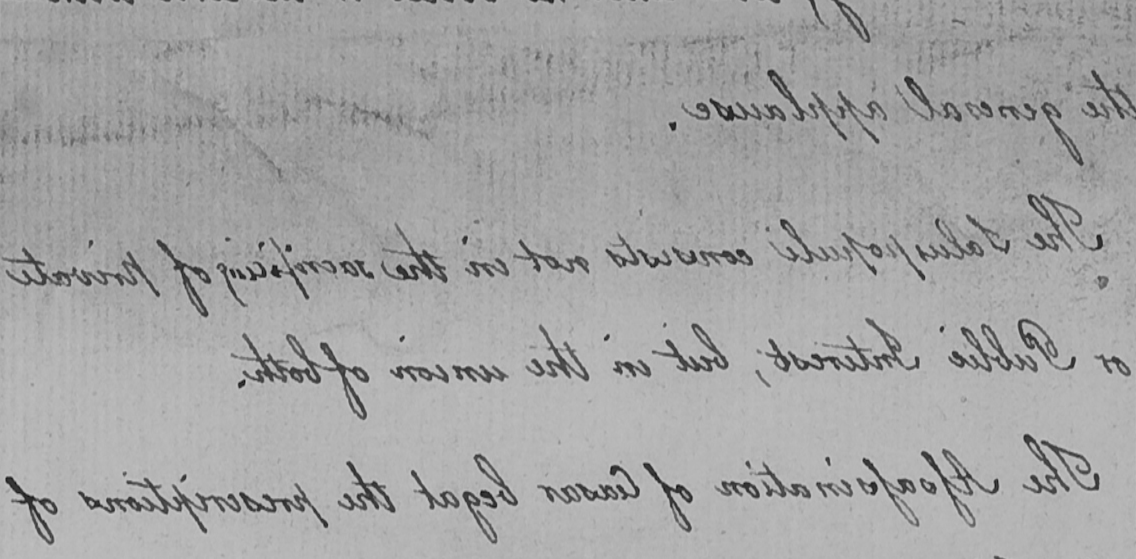 the general applause.
The Salus populi consists not in the sacrificing of private
or Public Interest, but in the union of both.
The Assassination of Ceasar begat the prescriptions of